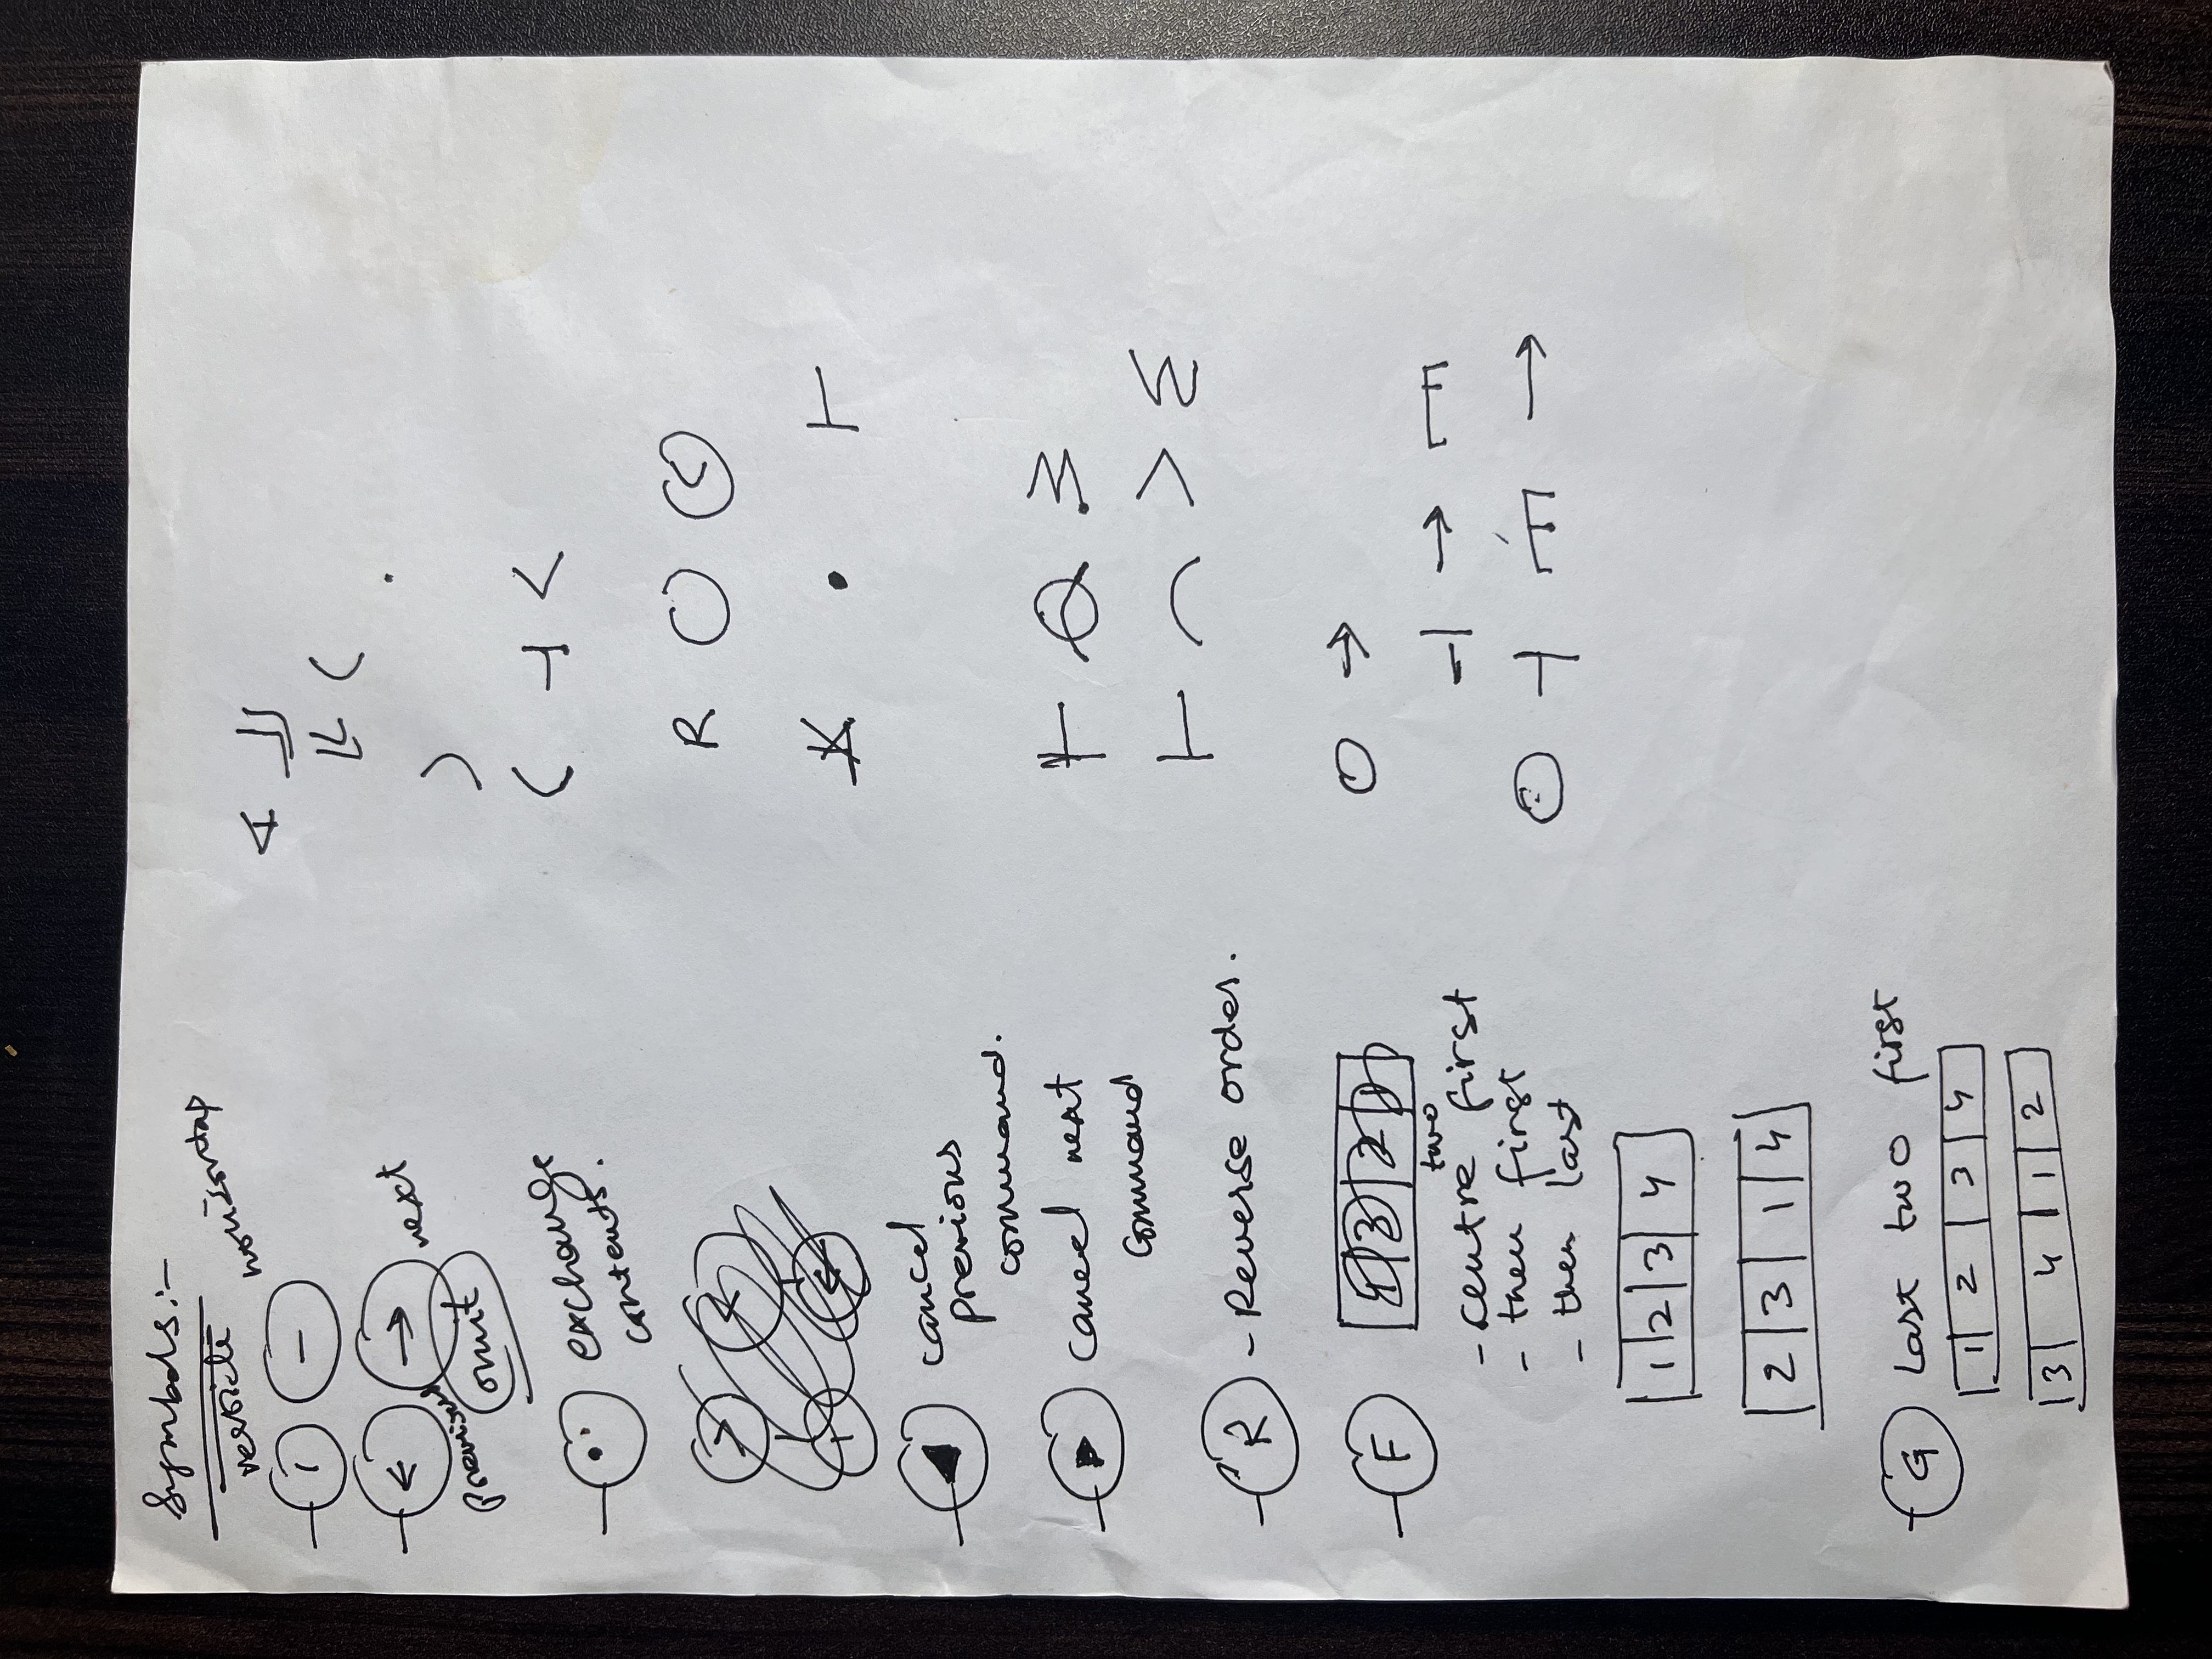 Symbols:-
verticle horizontal
previous next
omit
exchange
contents.
cancel
previous
command.
cancel next
Command
R - Reverse order.
F
- centre two first
- then first
- then last
1 2 3 4
2 3 1 4
G Last two first
1 2 3 4
3 4 1 2
R